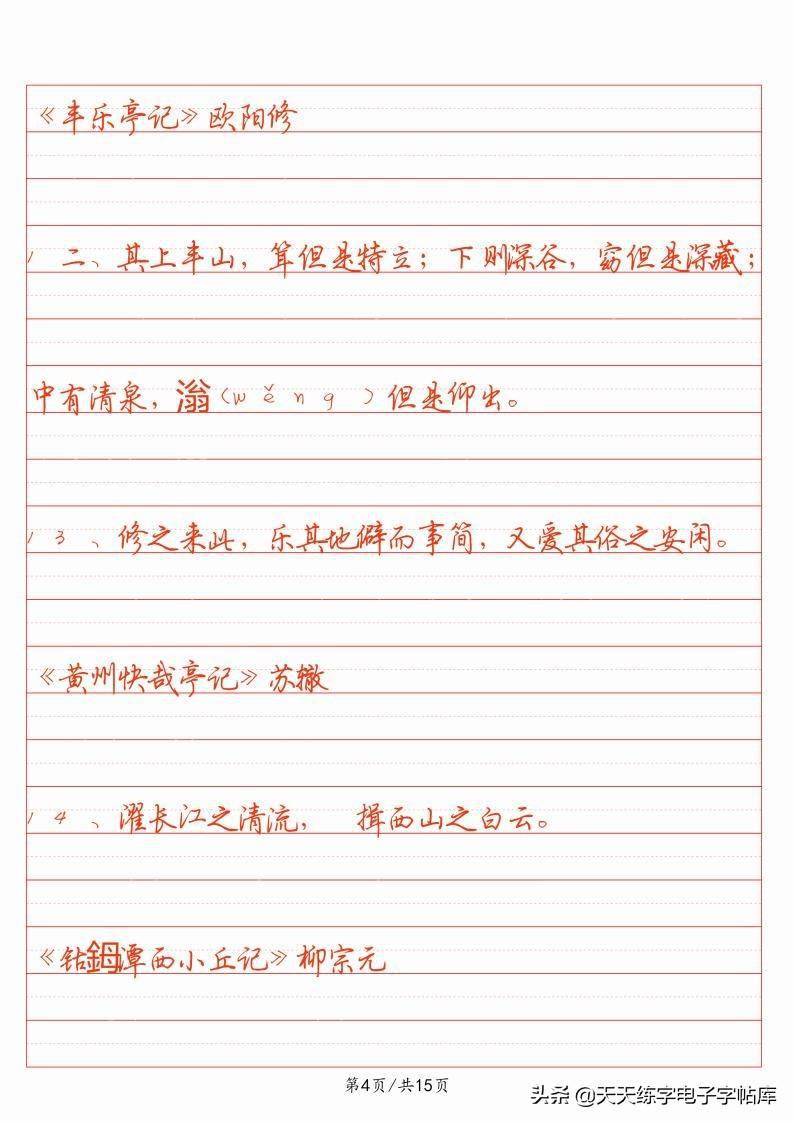 《丰乐亭记》欧阳修
1二、其上丰山，耸但是特立；下则深谷，窈但是深藏；
中有清泉，滃（wěng）但是仰出。
13、修之来此，乐其地僻而事简，又爱其俗之安闲。
《黄州快哉亭记》苏辙
14、濯长江之清流，　揖西山之白云。
《钴鉧潭西小丘记》柳宗元
第4页/共15页
头条 @天天练字电子字帖库